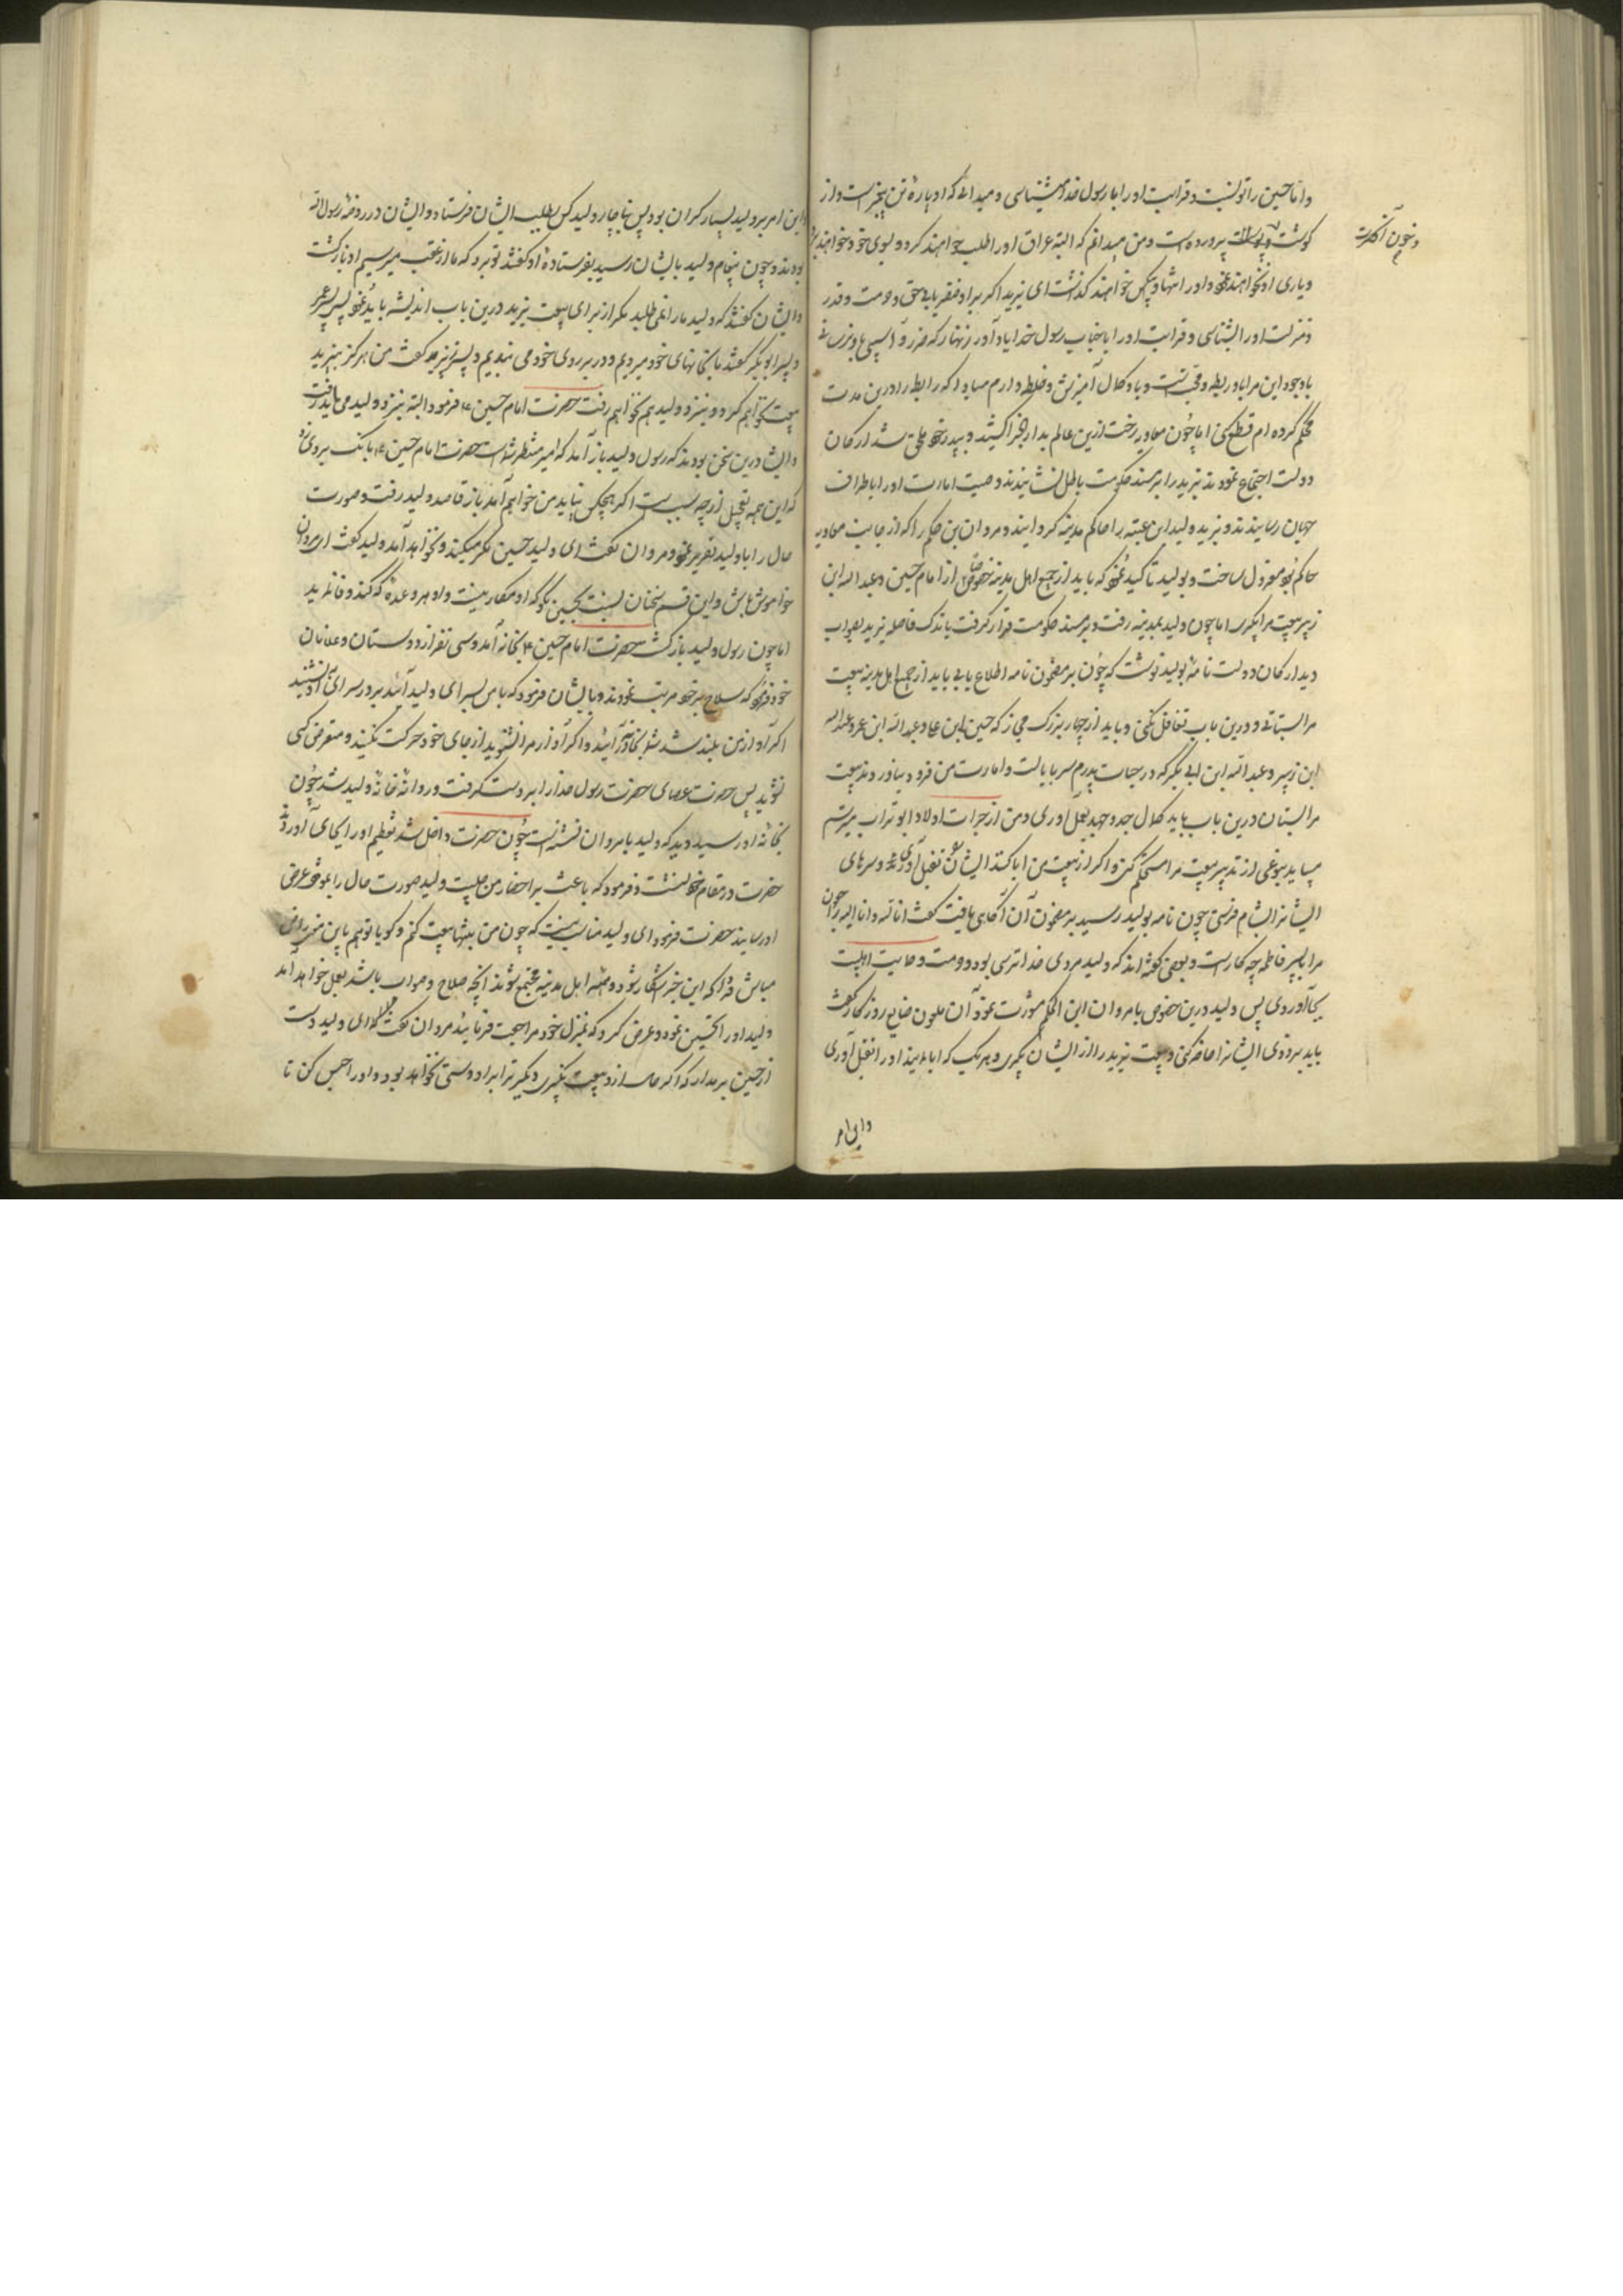 و اما حسین را تو نسبت و قرابت او را با رسول خدا میشناسی و میدانی که او پاره تن پیغمبر است و از
گوشت و پوست پرورده است و من میدانم که البته عراق او را طلب خواهند کرد و بسوی خود خواهند برد
و خون آنحضرت
و یاری او نخواهند نمود و او را تنها و بیکس خواهند گذاشت ای یزید اگر بر او ظفر یابی حق و حرمت و قدر
و منزلت او را بشناسی و قرابت او را با جناب رسول خدا یاد آور زنهار که ضرر و آسیبی باو نرسانی
با وجود این مرا با او ربطه و محبت است و با او کمال آمیزش و خلطه دارم مبادا که رابطه را درین مدت
محکم کرده ام قطع کنی اما چون معاویه رخت ازین عالم بدار الجزا کشید و به پدر خود ملحق شد ارکان
دولت اجتماع نمودند یزید را بر مسند حکومت باطل نشانیدند وصیت امارت او را باطراف
جهان رسانیدند و یزید ولید ابن عتبه را حاکم مدینه گردانید و مروان بن حکم را که از جانب معاویه
حاکم بود معزول ساخت و بولید تاکید نمود که باید از جمیع اهل مدینه خصوصا از امام حسین و عبد الله ابن
زبیر بیعت مرا بگیری اما چون ولید بمدینه رفت و بر مسند حکومت قرار گرفت باندک فاصله یزید بصواب
دید ارکان دولت نامه بولید نوشت که چون بر مضمون نامه اطلاع یابی باید از جمیع اهل مدینه بیعت
مرا بستانی و درین باب تغافل نکنی و باید از چهار بزرک حجاز که حسین ابن علی و عبد الله ابن عمر و عبد الله
ابن زبیر و عبد الله ابن ابی بکر که در حیات پدرم سر بایالت و امارت من فرود نیاوردند بیعت
مرا بستان درین باب باید کمال جد و جهد بعمل آوری و من از جرات اولاد ابو تراب میترسم
میباید بنوعی از تدبیر بیعت مرا مستحکم کنی و اگر از بیعت من ابا کنند ایشان را بقتل آوری و سرهای
ایشانرا بشام فرستی چون نامه بولید رسید بر مضمون آن آگاهی یافت گفت انا لله و انا الیه راجعون
مرا با پسر فاطمه چه کار است و بعضی گفته اند که ولید مردی خدا ترسی بود و حرمت و حمایت اهلبیت
بجا آوردی پس ولید درین خصوص با مروان ابن الحکم مشورت نمود آن ملعون ضایع روزگار گفت
باید بزودی ایشانرا حاضر کنی و بیعت یزید را از ایشان بگیری و هر یک که ابا نمایند او را بقتل آوری
و این امر
و این امر بر ولید بسیار گران بود پس ناچار ولید کس بطلب ایشان فرستاد و ایشان در روضه رسول الله
بودند و چون پیغام ولید بایشان رسید بفرستاده او گفتند تو برو که ما از عقب میرسیم او بازگشت
و ایشان گفتند که ولید ما را نمی طلبد مگر از برای بیعت یزید درین باب اندیشه باید نمود پس پسر عمر
و پسر ابو بکر گفتند ما بخانهای خود میرویم و در بر روی خود می بندیم و پسر زبیر گفت من هرگز به یزید
بیعت نخواهم کرد و بنزد ولید هم نخواهم رفت حضرت امام حسین ع فرمود البته بنزد ولید می باید رفت
و ایشان درین سخن بودند که رسول ولید باز آمد که امیر منتظر شماست حضرت امام حسین ع بانک بر وی زد
که این همه تعجیل از چه سبب است اگر هیچکس نیاید من خواهم آمد باز قاصد ولید رفت و صورت
حال را با ولید تقریر نمود مروان گفت ای ولید حسین مکر میکند و نخواهد آمد ولید گفت ای مروان
خواموش باش و این قسم سخنان نسبت بحسین مگو که او مکار نیست و او هر وعده که کند وفا نماید
اما چون رسول ولید بازگشت حضرت امام حسین ع بخانه آمد و سی نفر از دوستان و غلامان
خود فرمود که سلاح بر خود مرتب نمودند و بایشان فرمود که با من بسرای ولید آئید بر در سرای آن بنشینید
اگر آواز من بلند شد شما بخانه در آئید و اگر آواز مرا نشنوید از جای خود حرکت نکنید و متعرض کسی
نشوید پس حضرت عصای حضرت رسول خدا را بر دست گرفت و روانه خانه ولید شد چون
بخانه او رسید دید که ولید با مروان نشسته است چون حضرت داخل شد تعظیم او را بجای آوردند
حضرت در مقام خود نشست و فرمود که باعث بر احضار من چیست ولید صورت حال را بموقف عرض
او رسانید حضرت فرمود ای ولید مناسب نیست که چون من تنها بیعت کنم و گویا تو هم باین معنی راضی
مباش فردا که این خبر آشکار شود و همه اهل مدینه مجتمع شوند آنچه صلاح و صواب باشد بعمل خواهد آمد
ولید او را تحسین نمود و عرض کرد که بمنزل خود مراجعت فرمائید مروان گفت که ای ولید دست
از حسین بر مدار که اگر حالا ازو بیعت نگیری دیگر ترا بر او دستی نخواهد بود و او را حبس کن تا